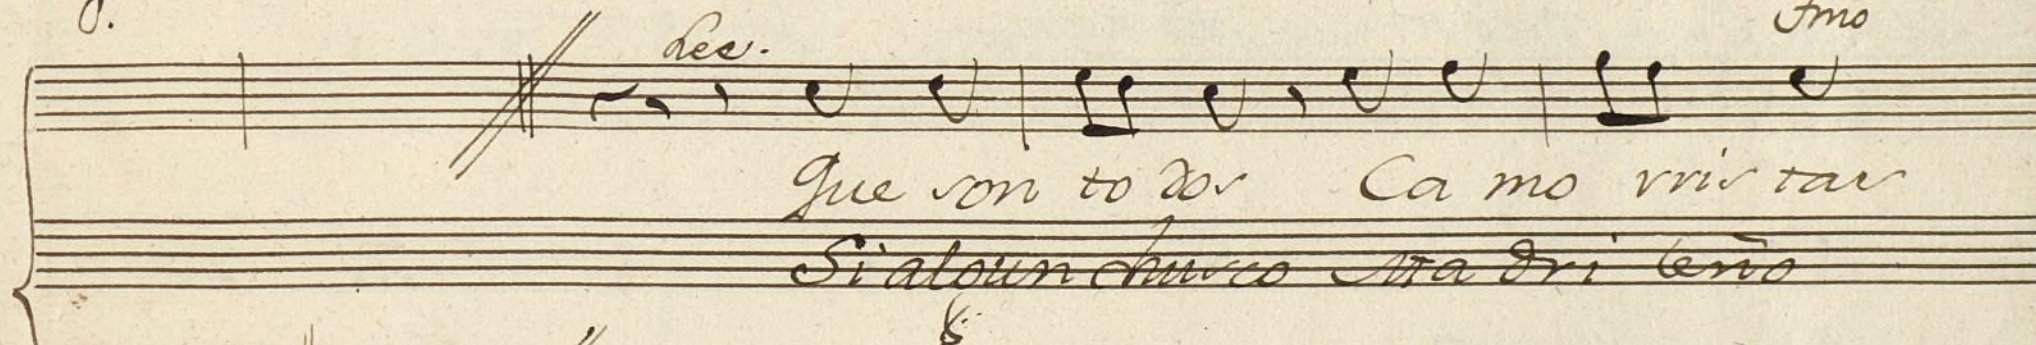 Lee.
fmo
Que son to dos Ca mo rris tas
Si algun chusco Ma dri leño